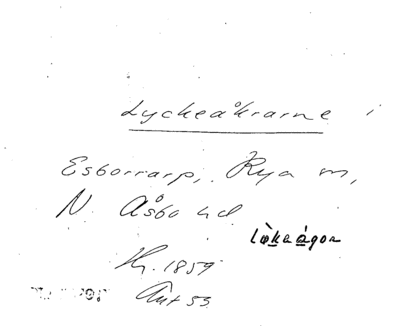 Lyckeåkrarne i
Esborrarp, Rya sn,
N. Åsbo hd
lø̀kaágon
Hy. 1859
Ant 53